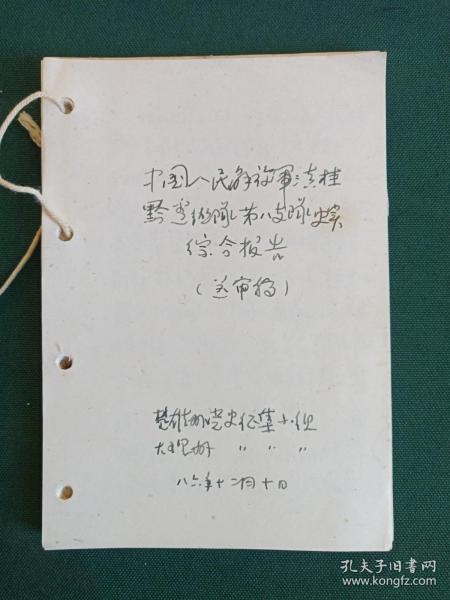 中国人民解放军滇桂
黔边纵队第八支队史实
综合报告
(送审稿)
楚雄州党史征集小组
大理州 〃 〃 〃
八六年十二月十日
孔夫子旧书网
www.kongfz.com